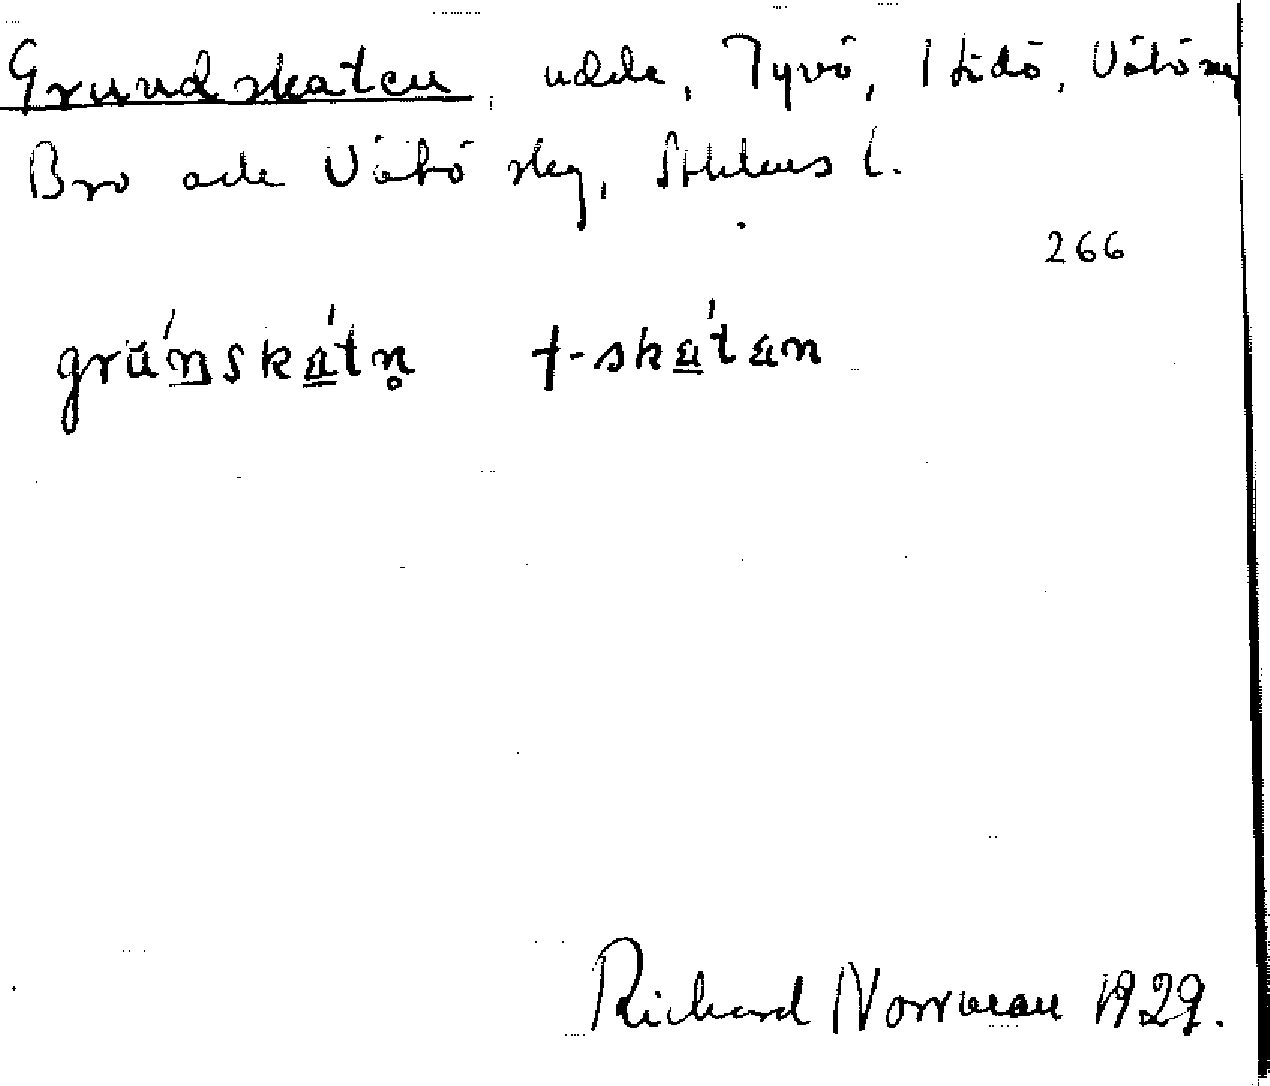 Grundskaten, udde, Tyvö, 1 Lidö, Vätö sn
Bro och Vätö skg, Sthlms l.
266
grúnskátn̥ †-skátan
Richard Norrman 1929.